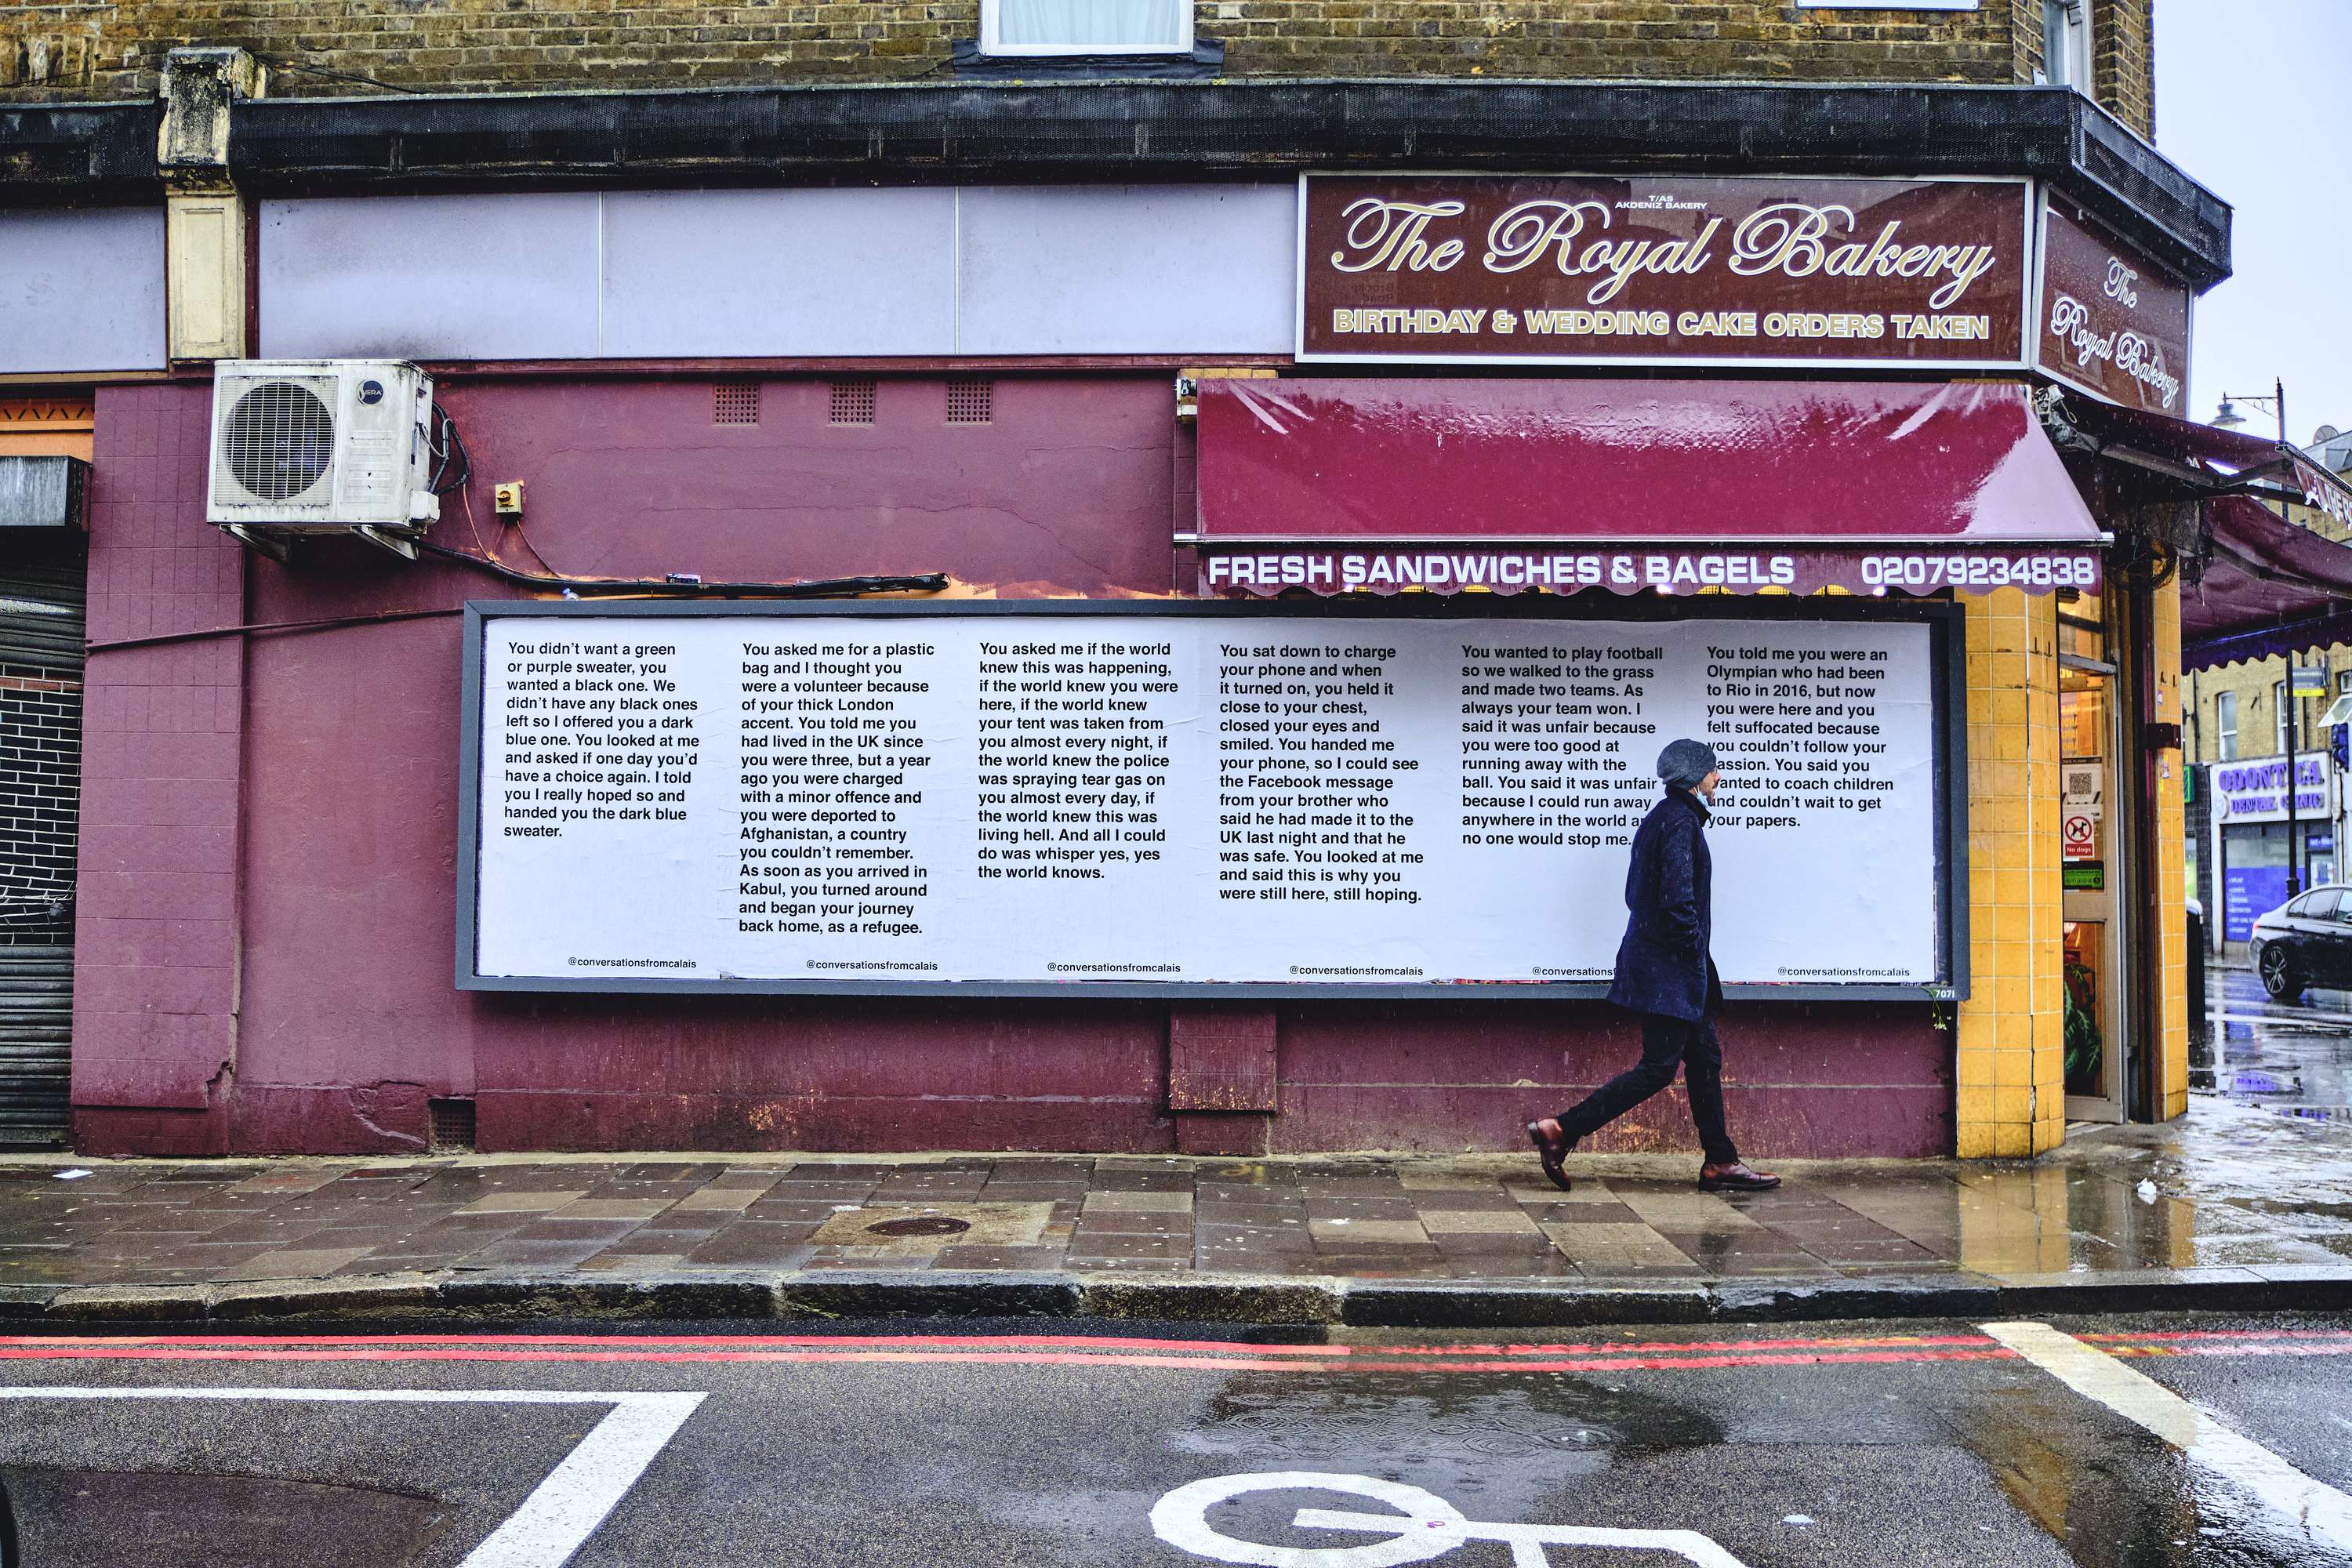 T/AS
AKDENIZ BAKERY
The Royal Bakery
BIRTHDAY & WEDDING CAKE ORDERS TAKEN
The
Royal Bakery
FRESH SANDWICHES & BAGELS 02079234838
You didn't want a green
or purple sweater, you
wanted a black one. We
didn't have any black ones
left so I offered you a dark
blue one. You looked at me
and asked if one day you'd
have a choice again. I told
you I really hoped so and
handed you the dark blue
sweater.
@conversationsfromcalais
You asked me for a plastic
bag and I thought you
were a volunteer because
of your thick London
accent. You told me you
had lived in the UK since
you were three, but a year
ago you were charged
with a minor offence and
you were deported to
Afghanistan, a country
you couldn't remember.
As soon as you arrived in
Kabul, you turned around
and began your journey
back home, as a refugee.
@conversationsfromcalais
You asked me if the world
knew this was happening,
if the world knew you were
here, if the world knew
your tent was taken from
you almost every night, if
the world knew the police
was spraying tear gas on
you almost every day, if
the world knew this was
living hell. And all I could
do was whisper yes, yes
the world knows.
@conversationsfromcalais
You sat down to charge
your phone and when
it turned on, you held it
close to your chest,
closed your eyes and
smiled. You handed me
your phone, so I could see
the Facebook message
from your brother who
said he had made it to the
UK last night and that he
was safe. You looked at me
and said this is why you
were still here, still hoping.
@conversationsfromcalais
You wanted to play football
so we walked to the grass
and made two teams. As
always your team won. I
said it was unfair because
you were too good at
running away with the
ball. You said it was unfair
because I could run away
anywhere in the world
no one would stop me.
@conversationsf
You told me you were an
Olympian who had been
to Rio in 2016, but now
you were here and you
felt suffocated because
you couldn't follow your
assion. You said you
anted to coach children
nd couldn't wait to get
your papers.
@conversationsfromcalais
7071
No dogs
ODONTICA
DENTAL CLINIC